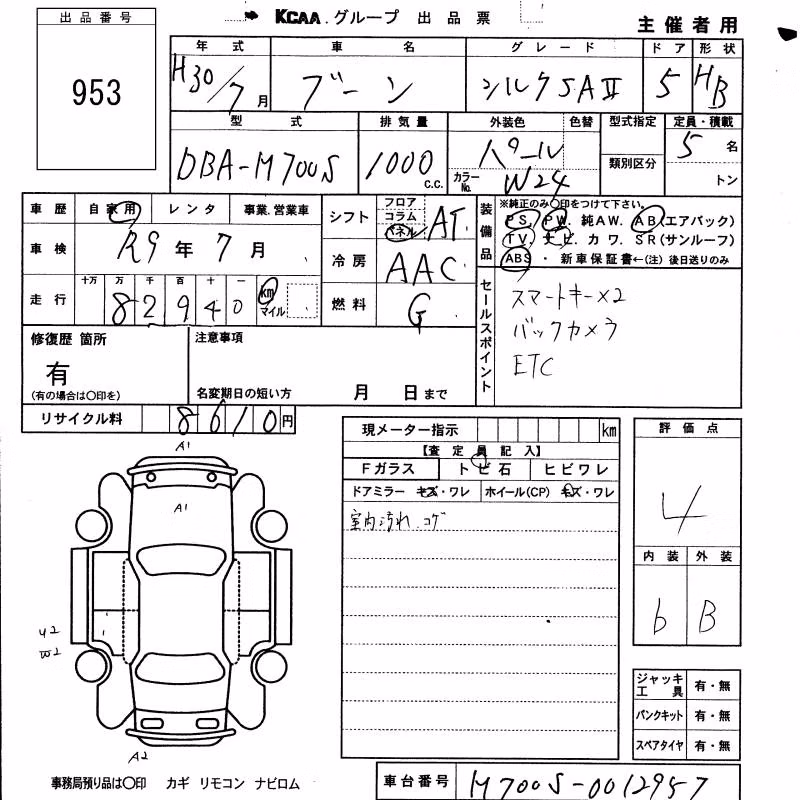 KCAA.グループ 出品票
主催者用
出品番号
953
年式 車名 グレード ドア 形状
H30/7月 ブーン シルクSAⅡ 5 HB
型式 排気量 外装色 色替 型式指定 定員・積載
DBA-M700S 1000 C.C. パール 類別区分 5名
カラーNo. W24 トン
車歴 自家用 レンタ 事業.営業車
車検 R9年7月
走行 十万 万 千 百 十 一 km マイル
8 2 9 4 0
シフト フロア コラム パネル AT
冷房 AAC
燃料 G
装備品
※純正のみ○印をつけて下さい。
PS. PW. 純AW. AB(エアバック)
TV. ナビ. カワ. SR(サンルーフ)
ABS ・ 新車保証書←(注) 後日送りのみ
セールスポイント
スマートキー×2
バックカメラ
ETC
修復歴 箇所
有
(有の場合は○印を)
注意事項
名変期日の短い方 月 日まで
リサイクル料 8610円
現メーター指示 km
【査定員記入】
Fガラス トビ石 ヒビワレ
ドアミラー キズ・ワレ ホイール(CP) キズ・ワレ
室内汚れ.コゲ
評価点
4
内装 外装
b B
A1
A1
U2
W2
A2
ジャッキ工具 有・無
パンクキット 有・無
スペアタイヤ 有・無
事務局預り品は○印 カギ リモコン ナビロム
車台番号 M700S-0012957